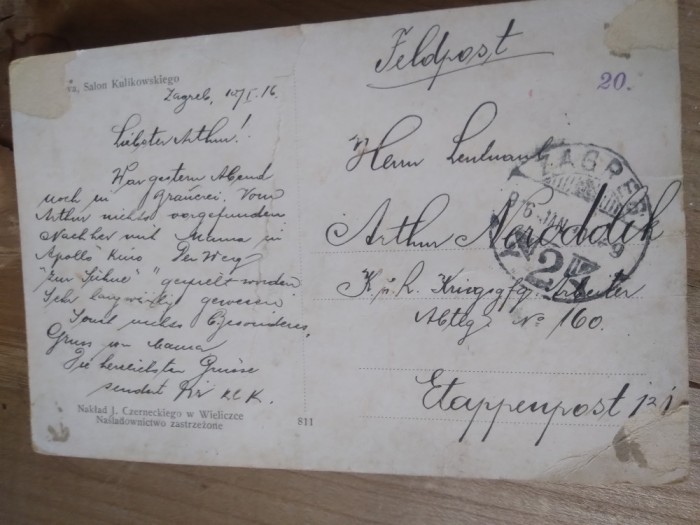 wa, Salon Kulikowskiego
Zagreb, 10/I. 16.
Liebster Arthur!
War gestern Abend
noch in Vom
Arthur nichts vorgefunden
Nachher mit Mama in
Apollo Kino Der Weg
"zur Sühne" gespielt worden
Sehr langweilig gewesen
Sonst nichts Besonderes.
Gruss von Mama
Die herzlichsten Grüsse
sendet Dir
Nakład J. Czerneckiego w Wieliczce
Naśladownictwo zastrzeżone
811
Feldpost
20.
Herrn Leutnant
Arthur
K. u. K. Kriegsgfg. Arbeiter
Abtlg No 160.
Etappenpost 121
ZAGREB
JAN
2